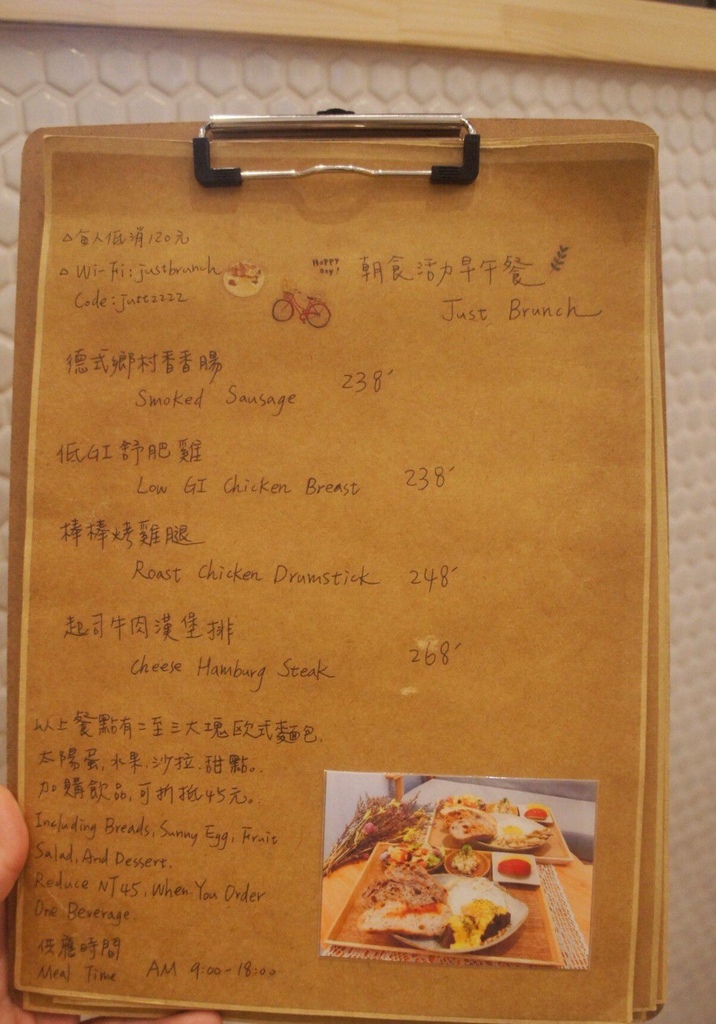 △每人低消120元
△Wi-Fi:justbrunch
Code:just2222
HAPPY
DAY!
朝食活力早午餐
Just Brunch
德式鄉村香香腸
Smoked Sausage 238'
低GI舒肥雞
Low GI Chicken Breast 238'
棒棒烤雞腿
Roast Chicken Drumstick 248'
起司牛肉漢堡排
Cheese Hamburg Steak 268'
以上餐點有二至三大塊歐式麵包,
太陽蛋,水果,沙拉,甜點。
加購飲品,可折抵45元。
Including Breads, Sunny Egg, Fruit
Salad, And Dessert.
Reduce NT45, When You Order
One Beverage
供應時間
Meal Time AM 9:00-18:00